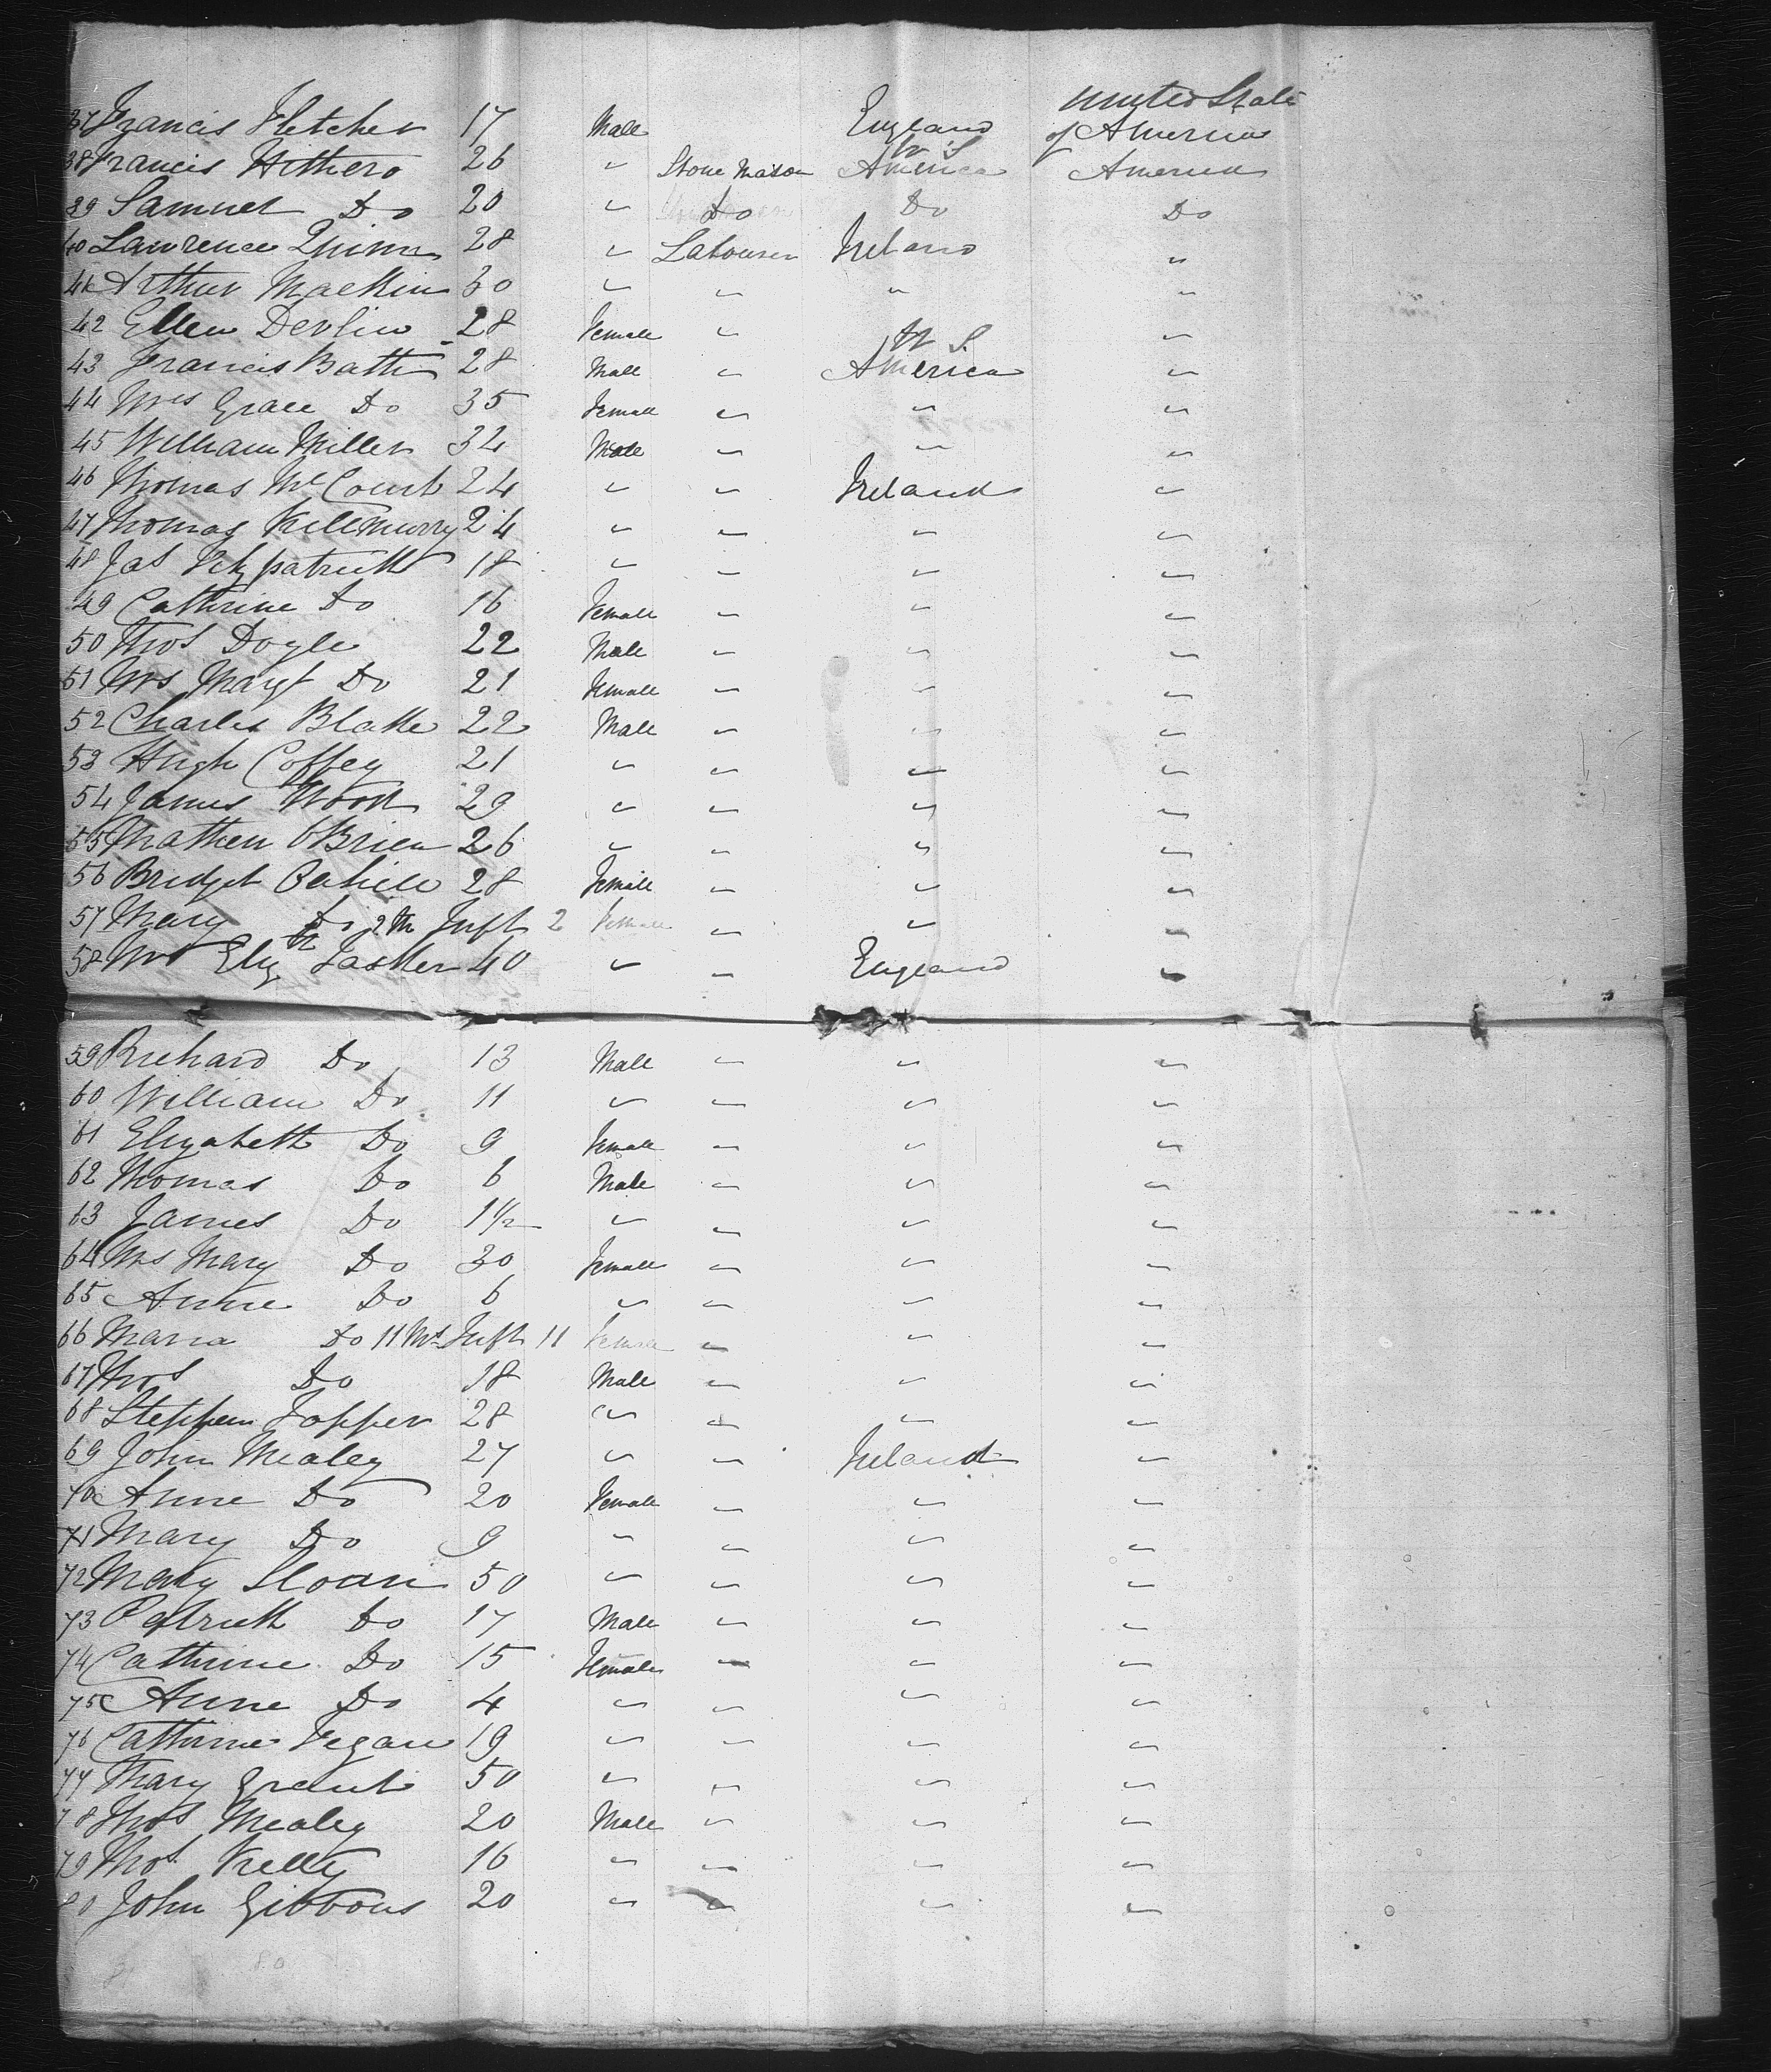 United State
37 Francis Fletcher 17 Male England of America
U S
38 Francis Hithero 26 " Stone Mason America America
39 Samuel Do 20 " Do Do Do
40 Lawrence Quinn 28 " Labourer Ireland "
41 Arthur Mackin 30 " " " "
42 Ellen Devlin 28 Female " "
U S
43 Francis Batty 28 Male " America "
44 Mrs Grace Do 35 Female " " "
45 William Miller 32 Male " " "
46 Thomas McCourt 24 " " Ireland "
47 Thomas Killmurry 24 " " " "
48 Jas Fitzpatrick 18 " " " "
49 Cathrine Do 16 Female " " "
50 Thos Doyle 22 Male " " "
51 Mrs Margt Do 21 Female " " "
52 Charles Blake 22 Male " " "
53 Hugh Coffey 21 " " " "
54 James Wood 29 " " " "
55 Mathew OBrien 26 " " " "
56 Bridget Cahill 28 Female " " "
57 Mary Do 2 M Inft 2 Female " " "
58 Mrs Elizth Lasker 40 " " England "
59 Richard Do 13 Male " " "
60 William Do 11 " " " "
61 Elizabeth Do 9 Female " " "
62 Thomas Do 6 Male " " "
63 James Do 1½ " " " "
64 Mrs Mary Do 30 Female " " "
65 Anne Do 6 " " " "
66 Maria Do 11 Ms Inft 11 Female " " "
67 Thos Do 18 Male " " "
68 Stephen Topper 28 " " " "
69 John Mealey 27 " " Ireland "
70 Anne Do 20 Female " " "
71 Mary Do 9 " " " "
72 Mary Sloan 50 " " " "
73 Patrick Do 17 Male " " "
74 Cathrine Do 15 Female " " "
75 Anne Do 4 " " " "
76 Cathrine Fegan 19 " " " "
77 Mary Grant 50 " " " "
78 Thos Mealey 20 Male " " "
79 Thos Kelly 16 " " " "
80 John Gibbons 20 " " " "
80